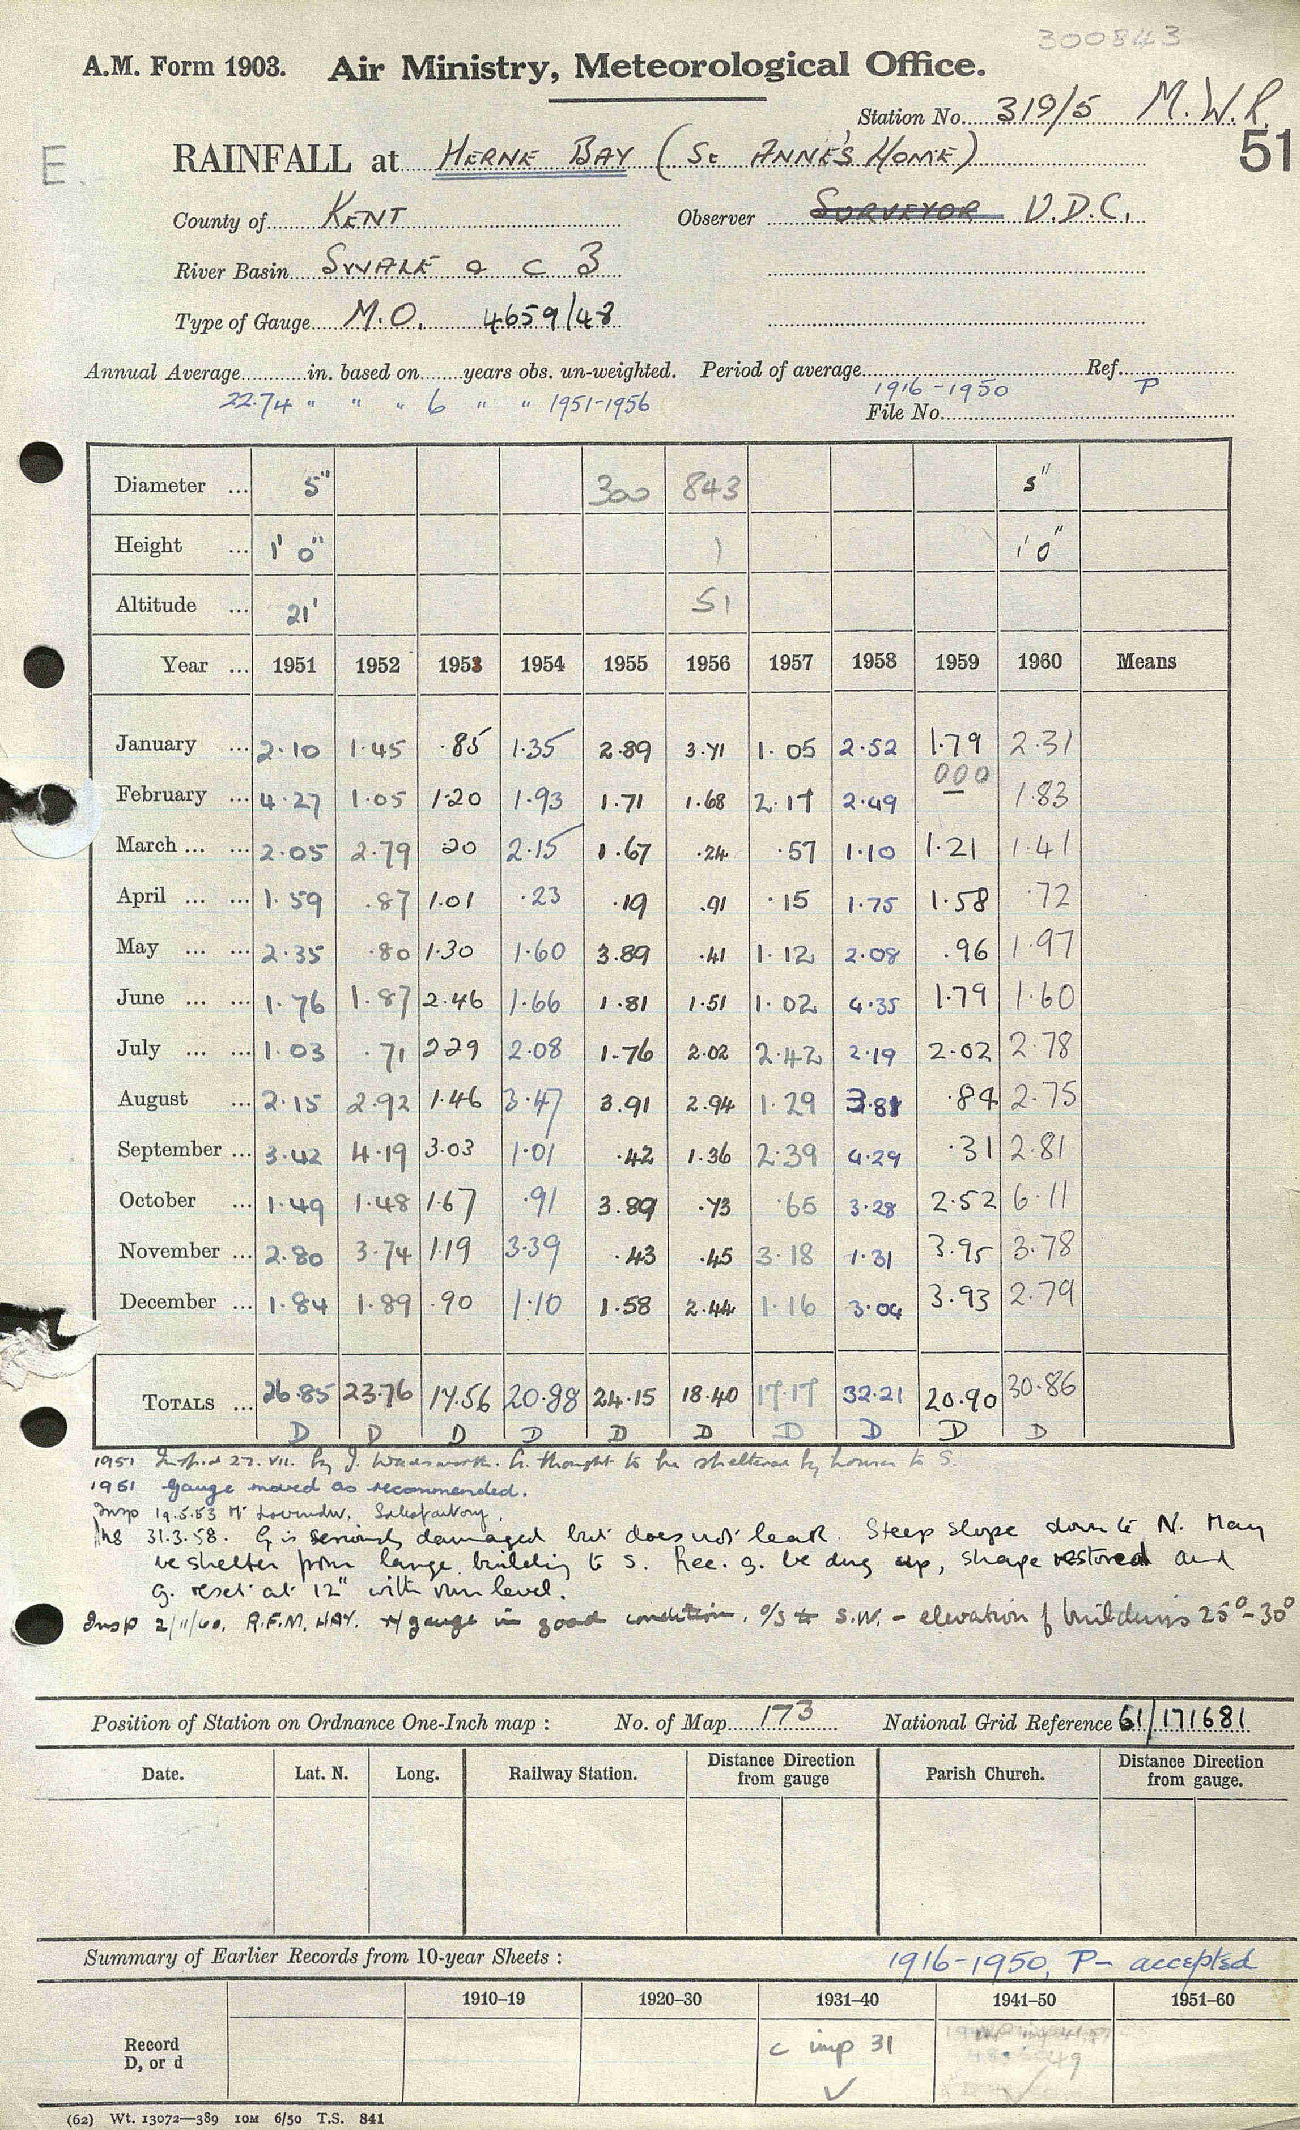 300843
A.M. Form 1903. Air Ministry, Meteorological Office.
Station No. 319/5 M.W.R.
51
E
RAINFALL at HERNE BAY (St ANNE'S HOME)
County of KENT Observer SURVEYOR U.D.C.
River Basin SWALE a c 3
Type of Gauge M.O. 4659/48
Annual Average in. based on years obs. un-weighted. Period of average 1916-1950 Ref. P
22.74 " " " 6 " " 1951-1956 File No.
Diameter ... 5" 300 843 5"
Height ... 1' 0" 1 1' 0"
Altitude ... 21' 51
Year ... 1951 1952 1953 1954 1955 1956 1957 1958 1959 1960 Means
January ... 2.10 1.45 .85 1.35 2.89 3.71 1.05 2.52 1.79 2.31
February ... 4.27 1.05 1.20 1.93 1.71 1.68 2.17 2.49 000 — 1.83
March ... ... 2.05 2.79 20 2.15 1.67 .24 .57 1.10 1.21 1.41
April ... ... 1.59 .87 1.01 .23 .19 .91 .15 1.75 1.58 .72
May ... ... 2.35 .80 1.30 1.60 3.89 .41 1.12 2.08 .96 1.97
June ... ... 1.76 1.87 2.46 1.66 1.81 1.51 1.02 4.35 1.79 1.60
July ... ... 1.03 .71 229 2.08 1.76 2.02 2.42 2.19 2.02 2.78
August ... 2.15 2.92 1.46 3.47 3.91 2.94 1.29 3.81 .84 2.75
September ... 3.42 4.19 3.03 1.01 .42 1.36 2.39 4.29 .31 2.81
October ... 1.49 1.48 1.67 .91 3.89 .73 .65 3.28 2.52 6.11
November ... 2.80 3.74 1.19 3.39 .43 .45 3.18 1.31 3.95 3.78
December ... 1.84 1.89 .90 1.10 1.58 2.44 1.16 3.04 3.93 2.79
TOTALS ... 26.85 23.76 17.56 20.88 24.15 18.40 17.17 32.21 20.90 30.86
D D D D D D D D D D
1951 Insp'd 27.VII. by J. Wadsworth. G. thought to be sheltered by house to S.
1951 Gauge moved as recommended.
Insp 19.5.53 Mr Satisfactory.
Ins 31.3.58. G is seriously damaged but does not leak. Steep slope down to N. May
be shelter from large building to S. Rec. g. be dug up, shape restored and
g. reset at 12" with rim level.
Insp 2/11/60. R.F.M. HAY. gauge in good condition. O/S to S.W. - elevation of buildings 25°-30°
Position of Station on Ordnance One-Inch map : No. of Map 173 National Grid Reference 61/171681
Date. Lat. N. Long. Railway Station. Distance Direction from gauge Parish Church. Distance Direction from gauge.
Summary of Earlier Records from 10-year Sheets : 1916-1950, P- accepted
1910-19 1920-30 1931-40 1941-50 1951-60
Record D, or d c imp 31 ✓ 49 ✓
(62) Wt. 13072—389 10M 6/50 T.S. 841